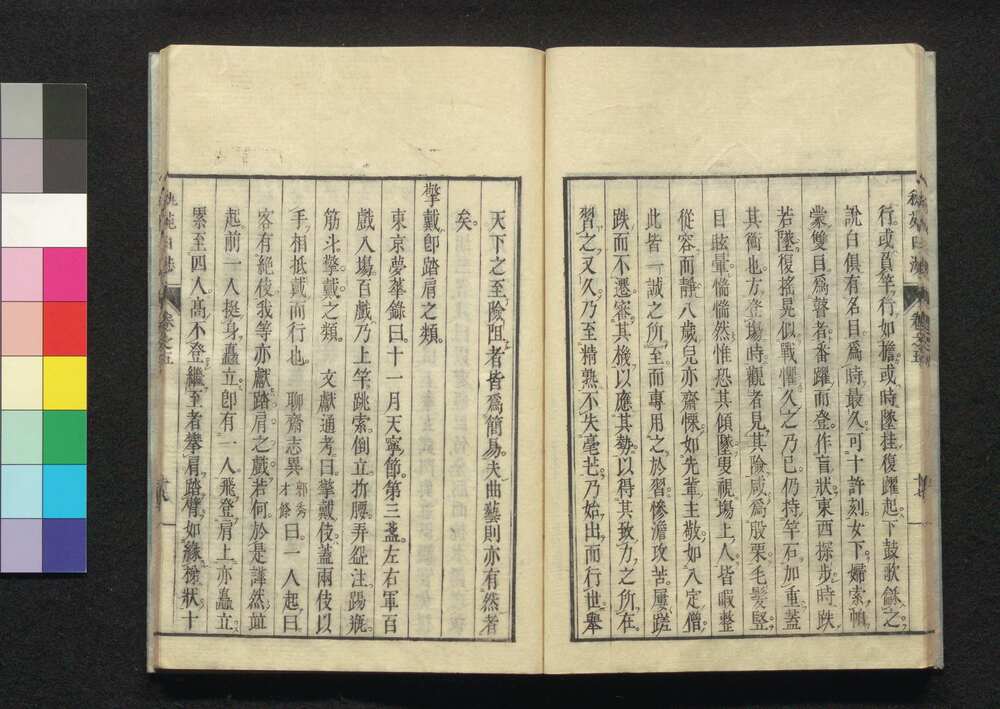 行。或負竿行如擔。或時墜挂復躍起。下鼓歌龢之
說白俱有名目爲時最久。可十許刻。女下。婦索帕
蒙雙目爲瞽者番躍而登。作盲狀。東西探步。時跌
若墜。復搖晃似戰懼。久之乃已。仍持竿石。加重蓋
其衡也。方登場時。觀者見其險。咸爲股栗。毛髮豎
目眩暈。惴惴然惟恐其傾墜。叟視場上人。皆暇整
從容而靜。八歲兒亦齋慄如先輩主敬。如入定僧
此皆一誠之所至。而專用之於習。慘澹攻苦。屢蹉
跌而不遷。審其機以應其勢。以得其致力之所在。
習之又久。乃至精熟。不失毫芒。乃始出而行世。舉
天下之至險阻者皆爲簡易。夫曲藝則亦有然者
矣。
擎戴卽踏肩之類
東京夢華錄曰十一月天寧節。第三盞左右軍百
戲入場百戲乃上竿跳索倒立折腰弄盌注踢瓶。
筋斗擎戴之類。 文獻通考曰。擎戴伎。蓋兩伎以
手相抵戴而行也 聊齋志異郭秀才條曰。一人起曰
客有絶伎我等亦獻踏肩之戲。若何。於是譁然竝
起前一人挺身矗立。卽有一人。飛登肩上亦矗立
累至四人。高不登。繼至者。攀肩踏臂。如緣梯狀十